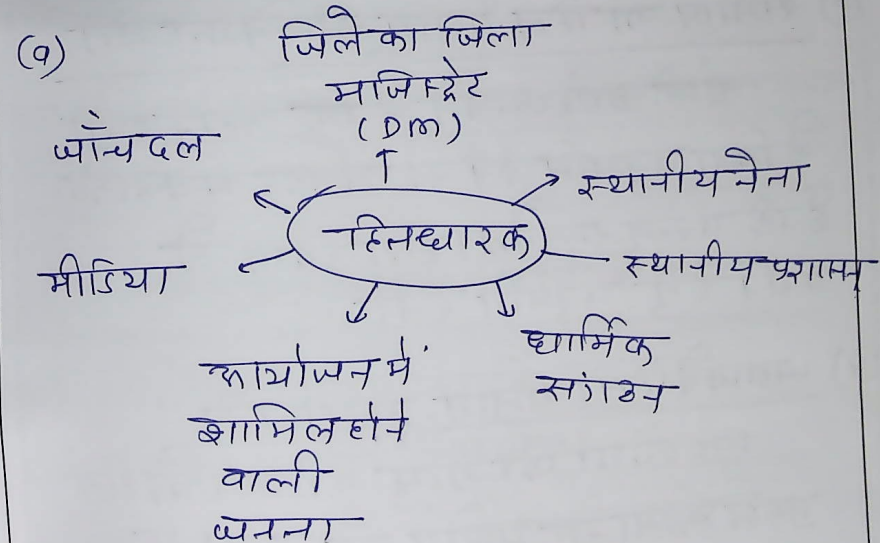 (a)
जिले का जिला
मजिस्ट्रेट
(DM)
जाँच दल
स्थानीय नेता
हितधारक
स्थानीय प्रशासन
मीडिया
धार्मिक
संगठन
आयोजन में
शामिल होने
वाली
जनता